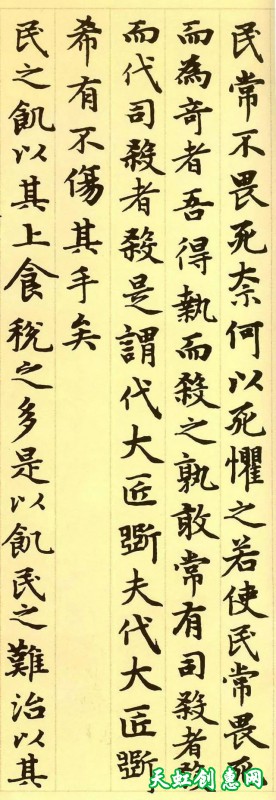 民常不畏死奈何以死懼之若使民常畏死
而為奇者吾得執而殺之孰敢常有司殺者殺
而代司殺者殺是謂代大匠斲夫代大匠斲
希有不傷其手矣
民之飢以其上食稅之多是以飢民之難治以其
天虹创惠网